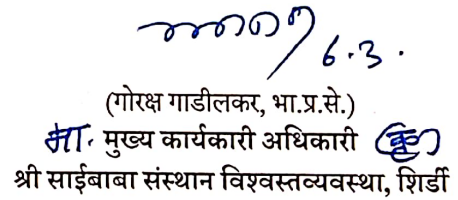 6.3.
(गोरक्ष गाडीलकर, भा.प्र.से.)
मा. मुख्य कार्यकारी अधिकारी
श्री साईबाबा संस्थान विश्वस्तव्यवस्था, शिर्डी